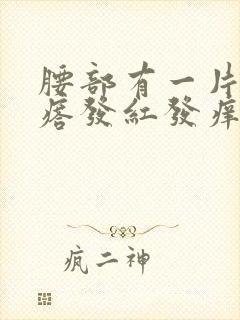 腰部有一片
痞發紅發痒
疯二神